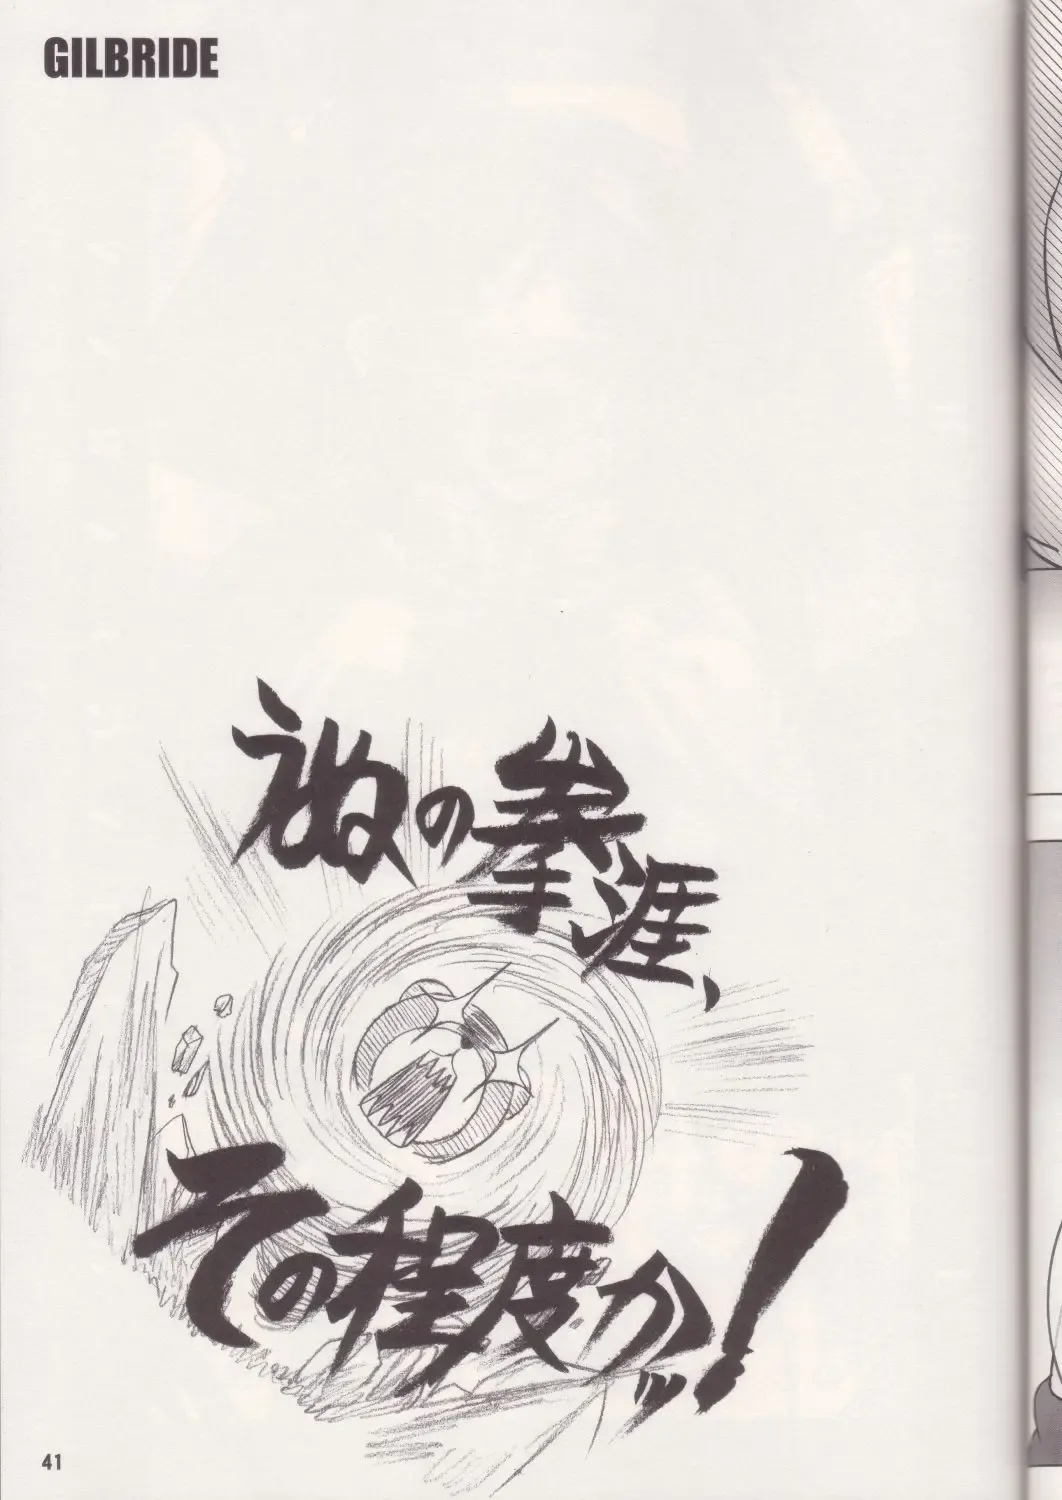 GILBRIDE
うぬの拳涯、
その程度かッ!
41